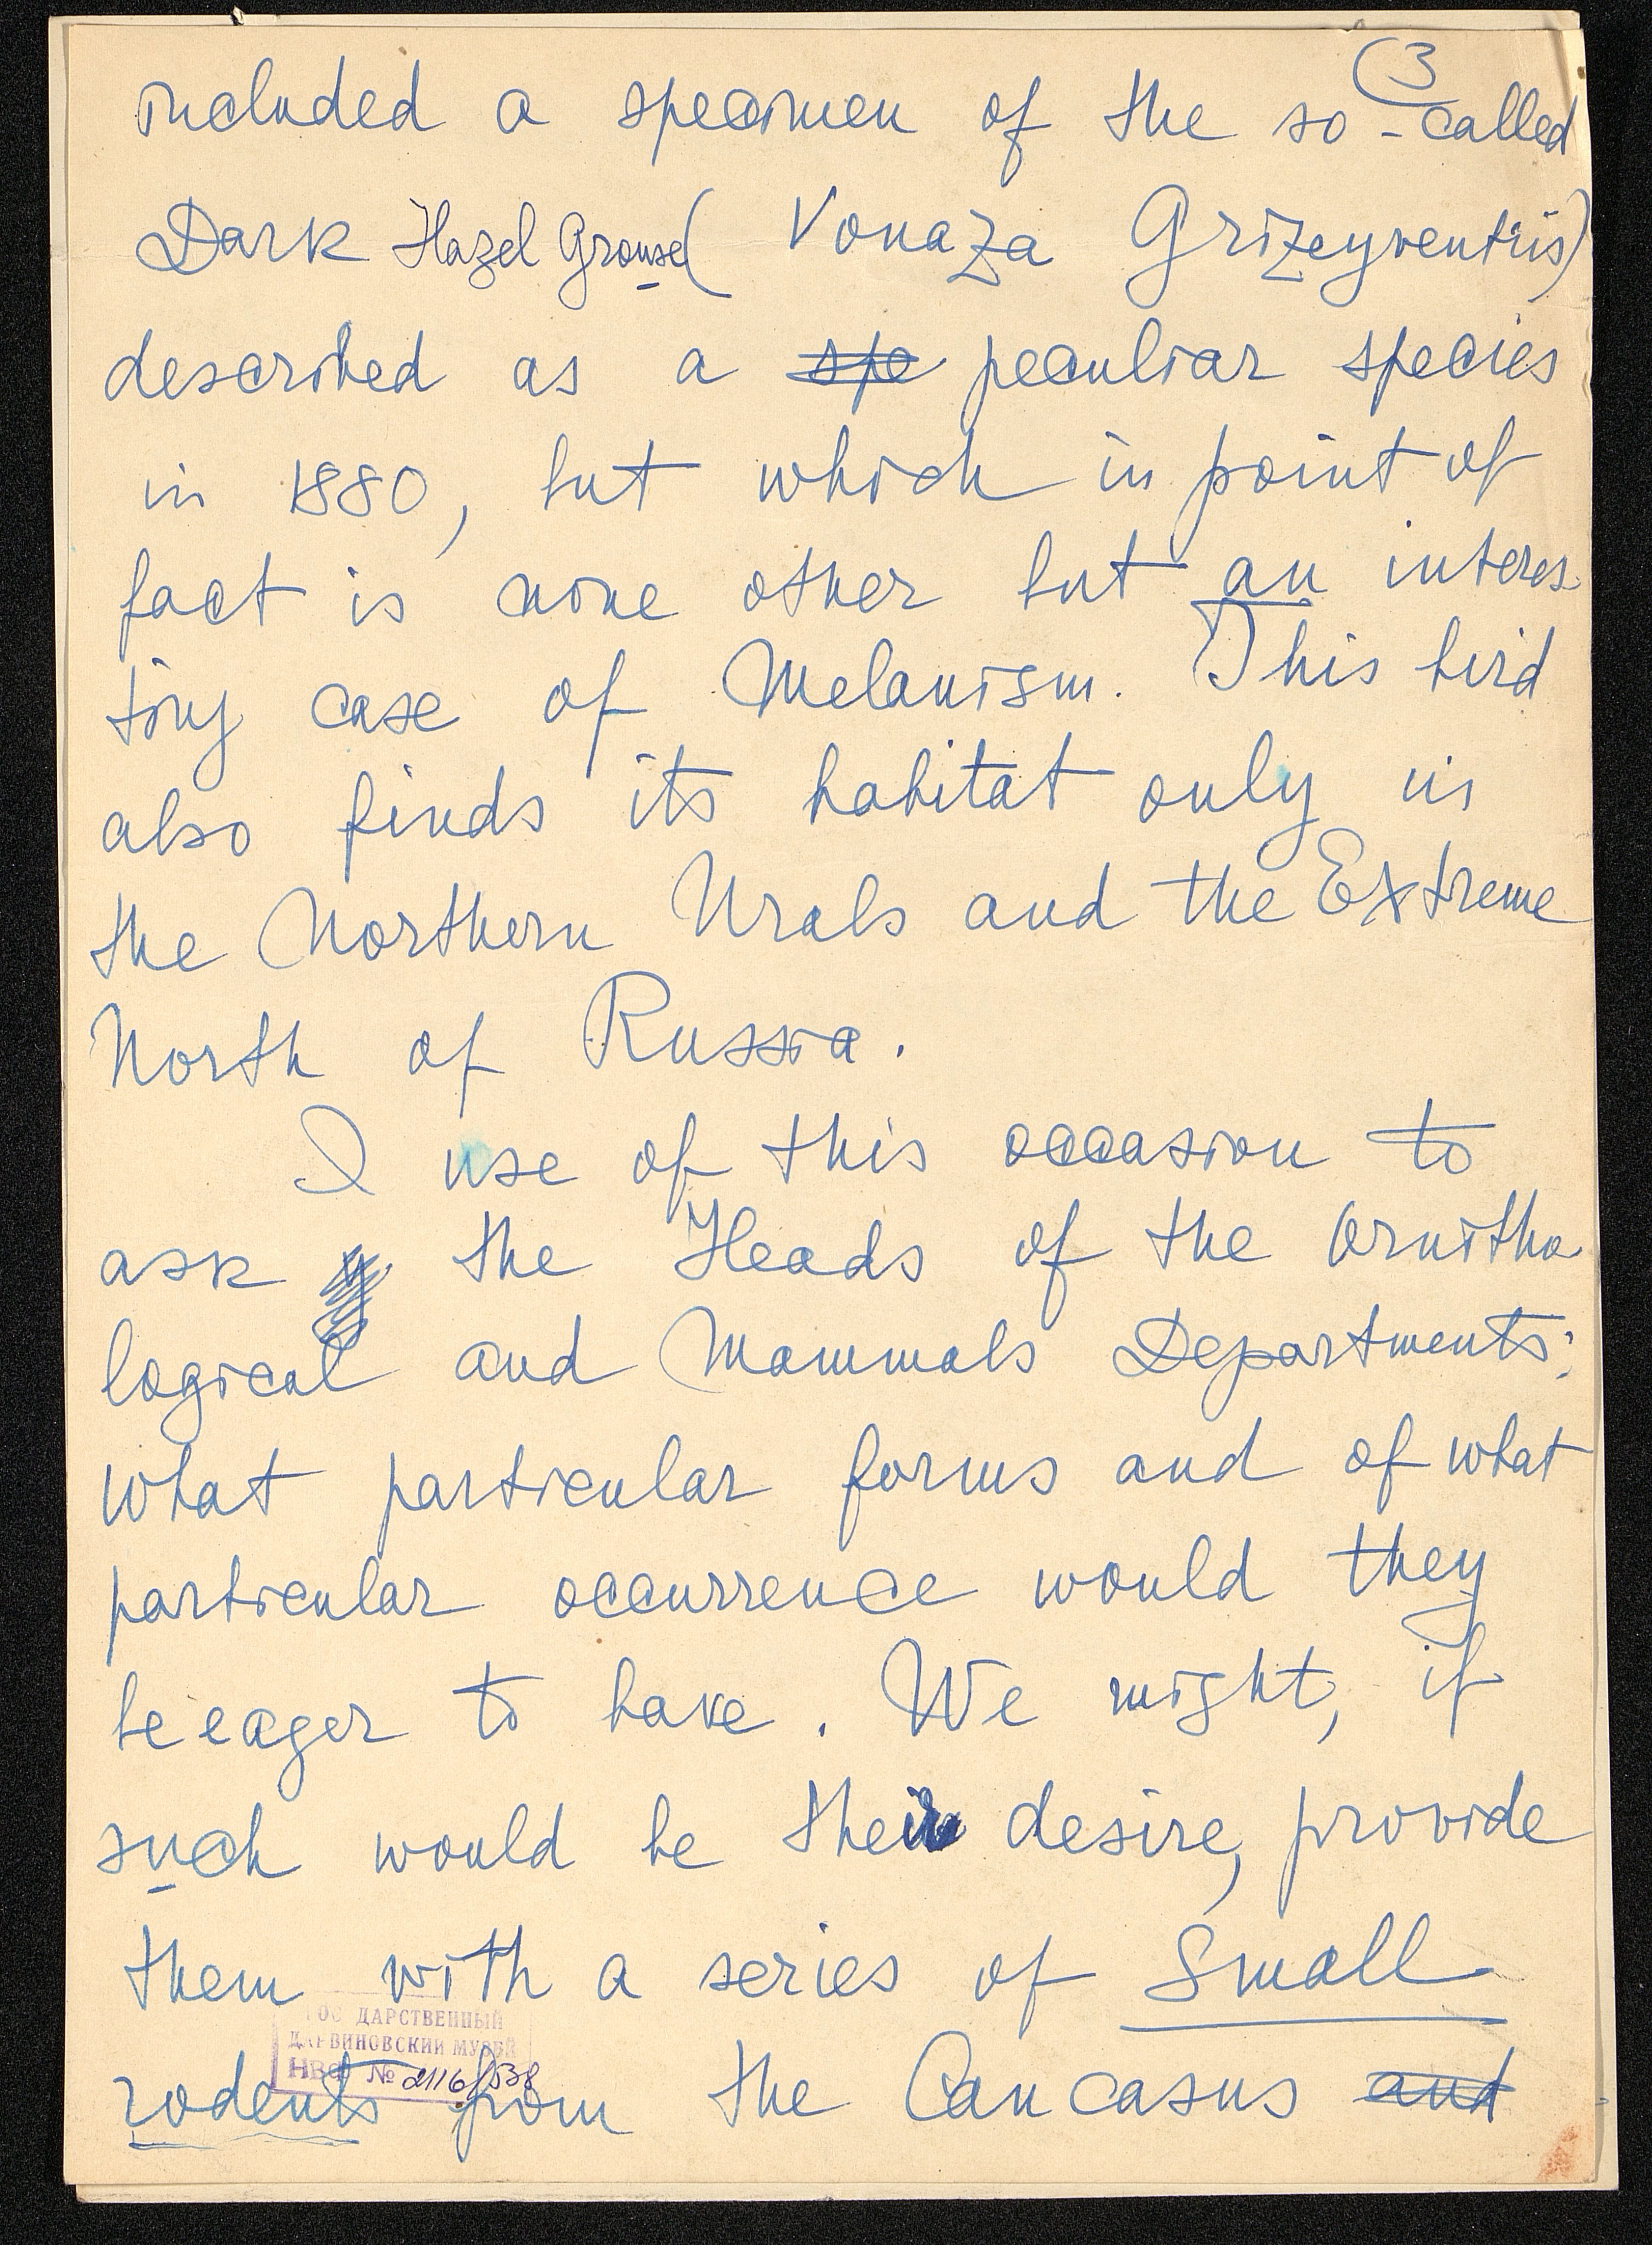 (3
included a specimen of the so-called
Dark Hazel Grouse (Vonaza Grizeyventris)
described as a spe peculiar species
in 1880, but which in point of
fact is none other but an interes-
ting case of Melanism. This bird
also finds its habitat only in
the Northern Urals and the Extreme
North of Russia.
I use of this occasion to
ask the Heads of the Ornitho-
logical and Mammals Departments:
what particular forms and of what
particular occurrence would they
be eager to have. We might, if
such would be their desire, provide
them with a series of Small
ГОС ДАРСТВЕННЫЙ
ДАРВИНОВСКИЙ МУЗЕЙ
НВФ № 2116/538
rodents from the Caucasus and